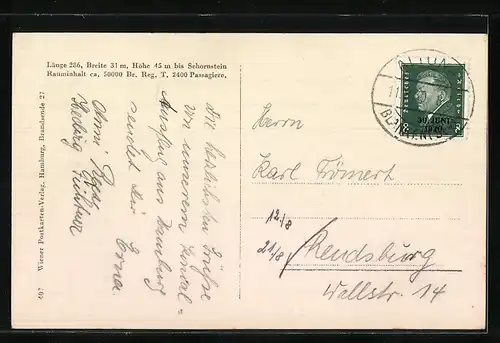 Länge 286, Breite 31 m, Höhe 45 m bis Schornstein
Rauminhalt ca. 50000 Br. Reg. T. 2400 Passagiere.
407 Wiener Postkarten-Verlag, Hamburg, Brandsende 27
die herzlichsten Grüße
von unserem
Ausflug aus Hamburg
sendet dir
Erna.
Anni
Hedwig
DEUTSCHES REICH
8 8
30. JUNI
1930
11.
Herrn
Karl Frömert
12/8
21/8
Rendsburg
Wallstr. 14